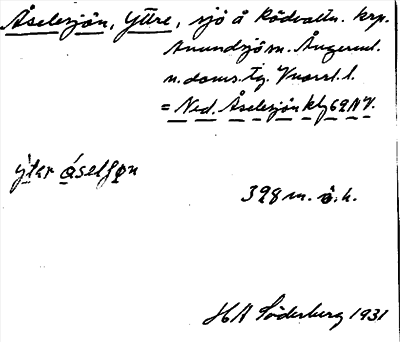 Åselesjön, Yttre, sjö å Rödvattn. krp.
Anundsjö sn. Ångerml.
n. doms. tg. Vnorrl. l.
= Ned. Åselesjön kbl 62 NV.
ẏtər áselʃøn
398 m. ö. h.
H A Söderberg 1931